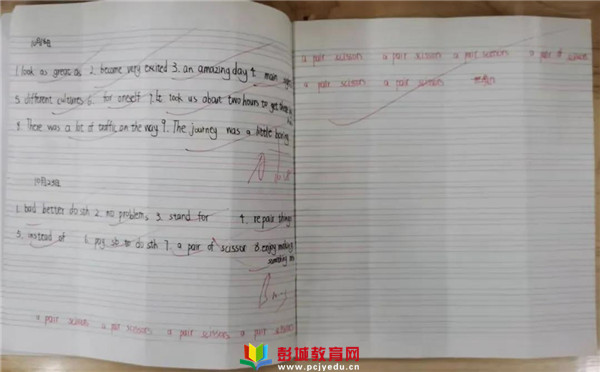 1. look as great as 2. become very excited 3. an amazing day 4. main
5. different cultures 6. for oneself 7. It took us about two hours to get there
8. There was a lot of traffic on the way 9. The journey was a little boring
1. bad better do sth 2. no problem 3. stand for 4. repair things
5. instead of 6. pay sb to do sth 7. a pair of scissor 8. enjoy making
something
a pair scissors a pair scissors a pair scissors a pair scissors
a pair scissors a pair scissors a pair scissors a pair of scissors
a pair scissors a pair scissors
彭城教育网
www.pcjyedu.cn